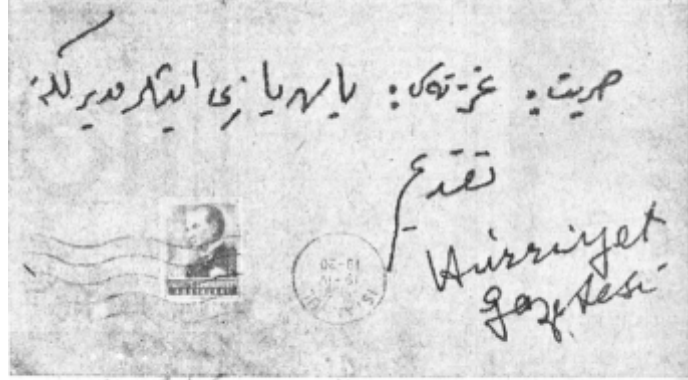 حريت: غزته‌سی: ياز يازى ايشلر مديرلگنه
تقديم
Hürriyet
gazetesi